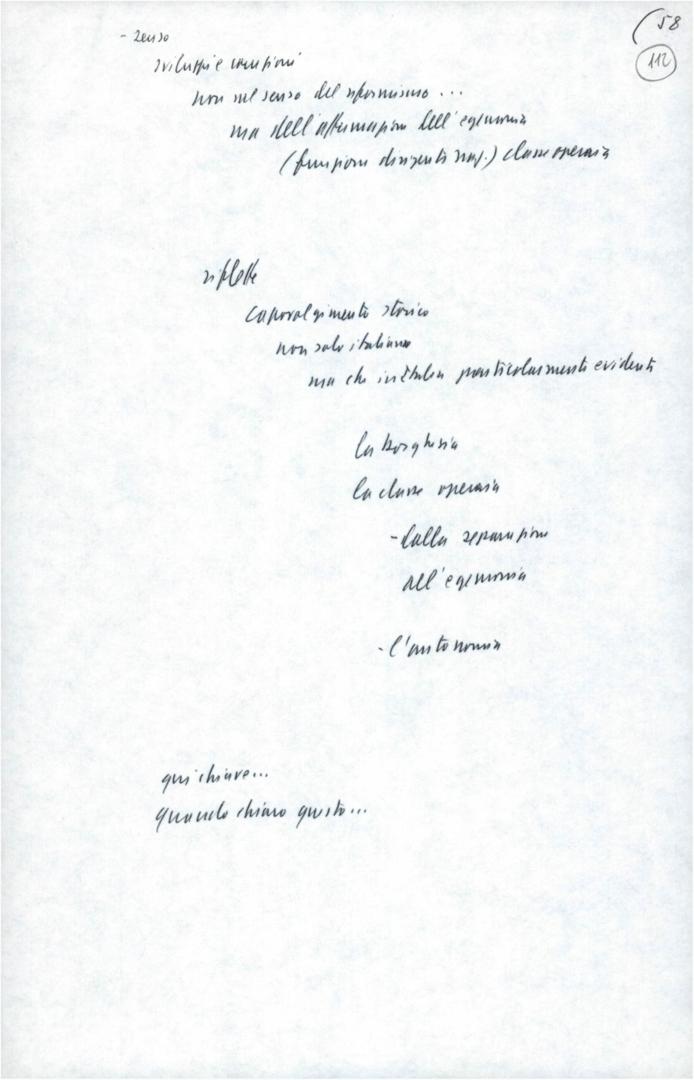 58
112
- senso
sviluppi e
non nel senso del riformismo ...
ma dell'affermazione dell'egemonia
(funzione dirigente naz.) classe operaia
riflette
capovolgimento storico
non solo italiano
ma che in Italia particolarmente evidente
la borghesia
la classe operaia
- dalla separazione
all'egemonia
- l'autonomia
qui chiave...
Quando chiaro questo...